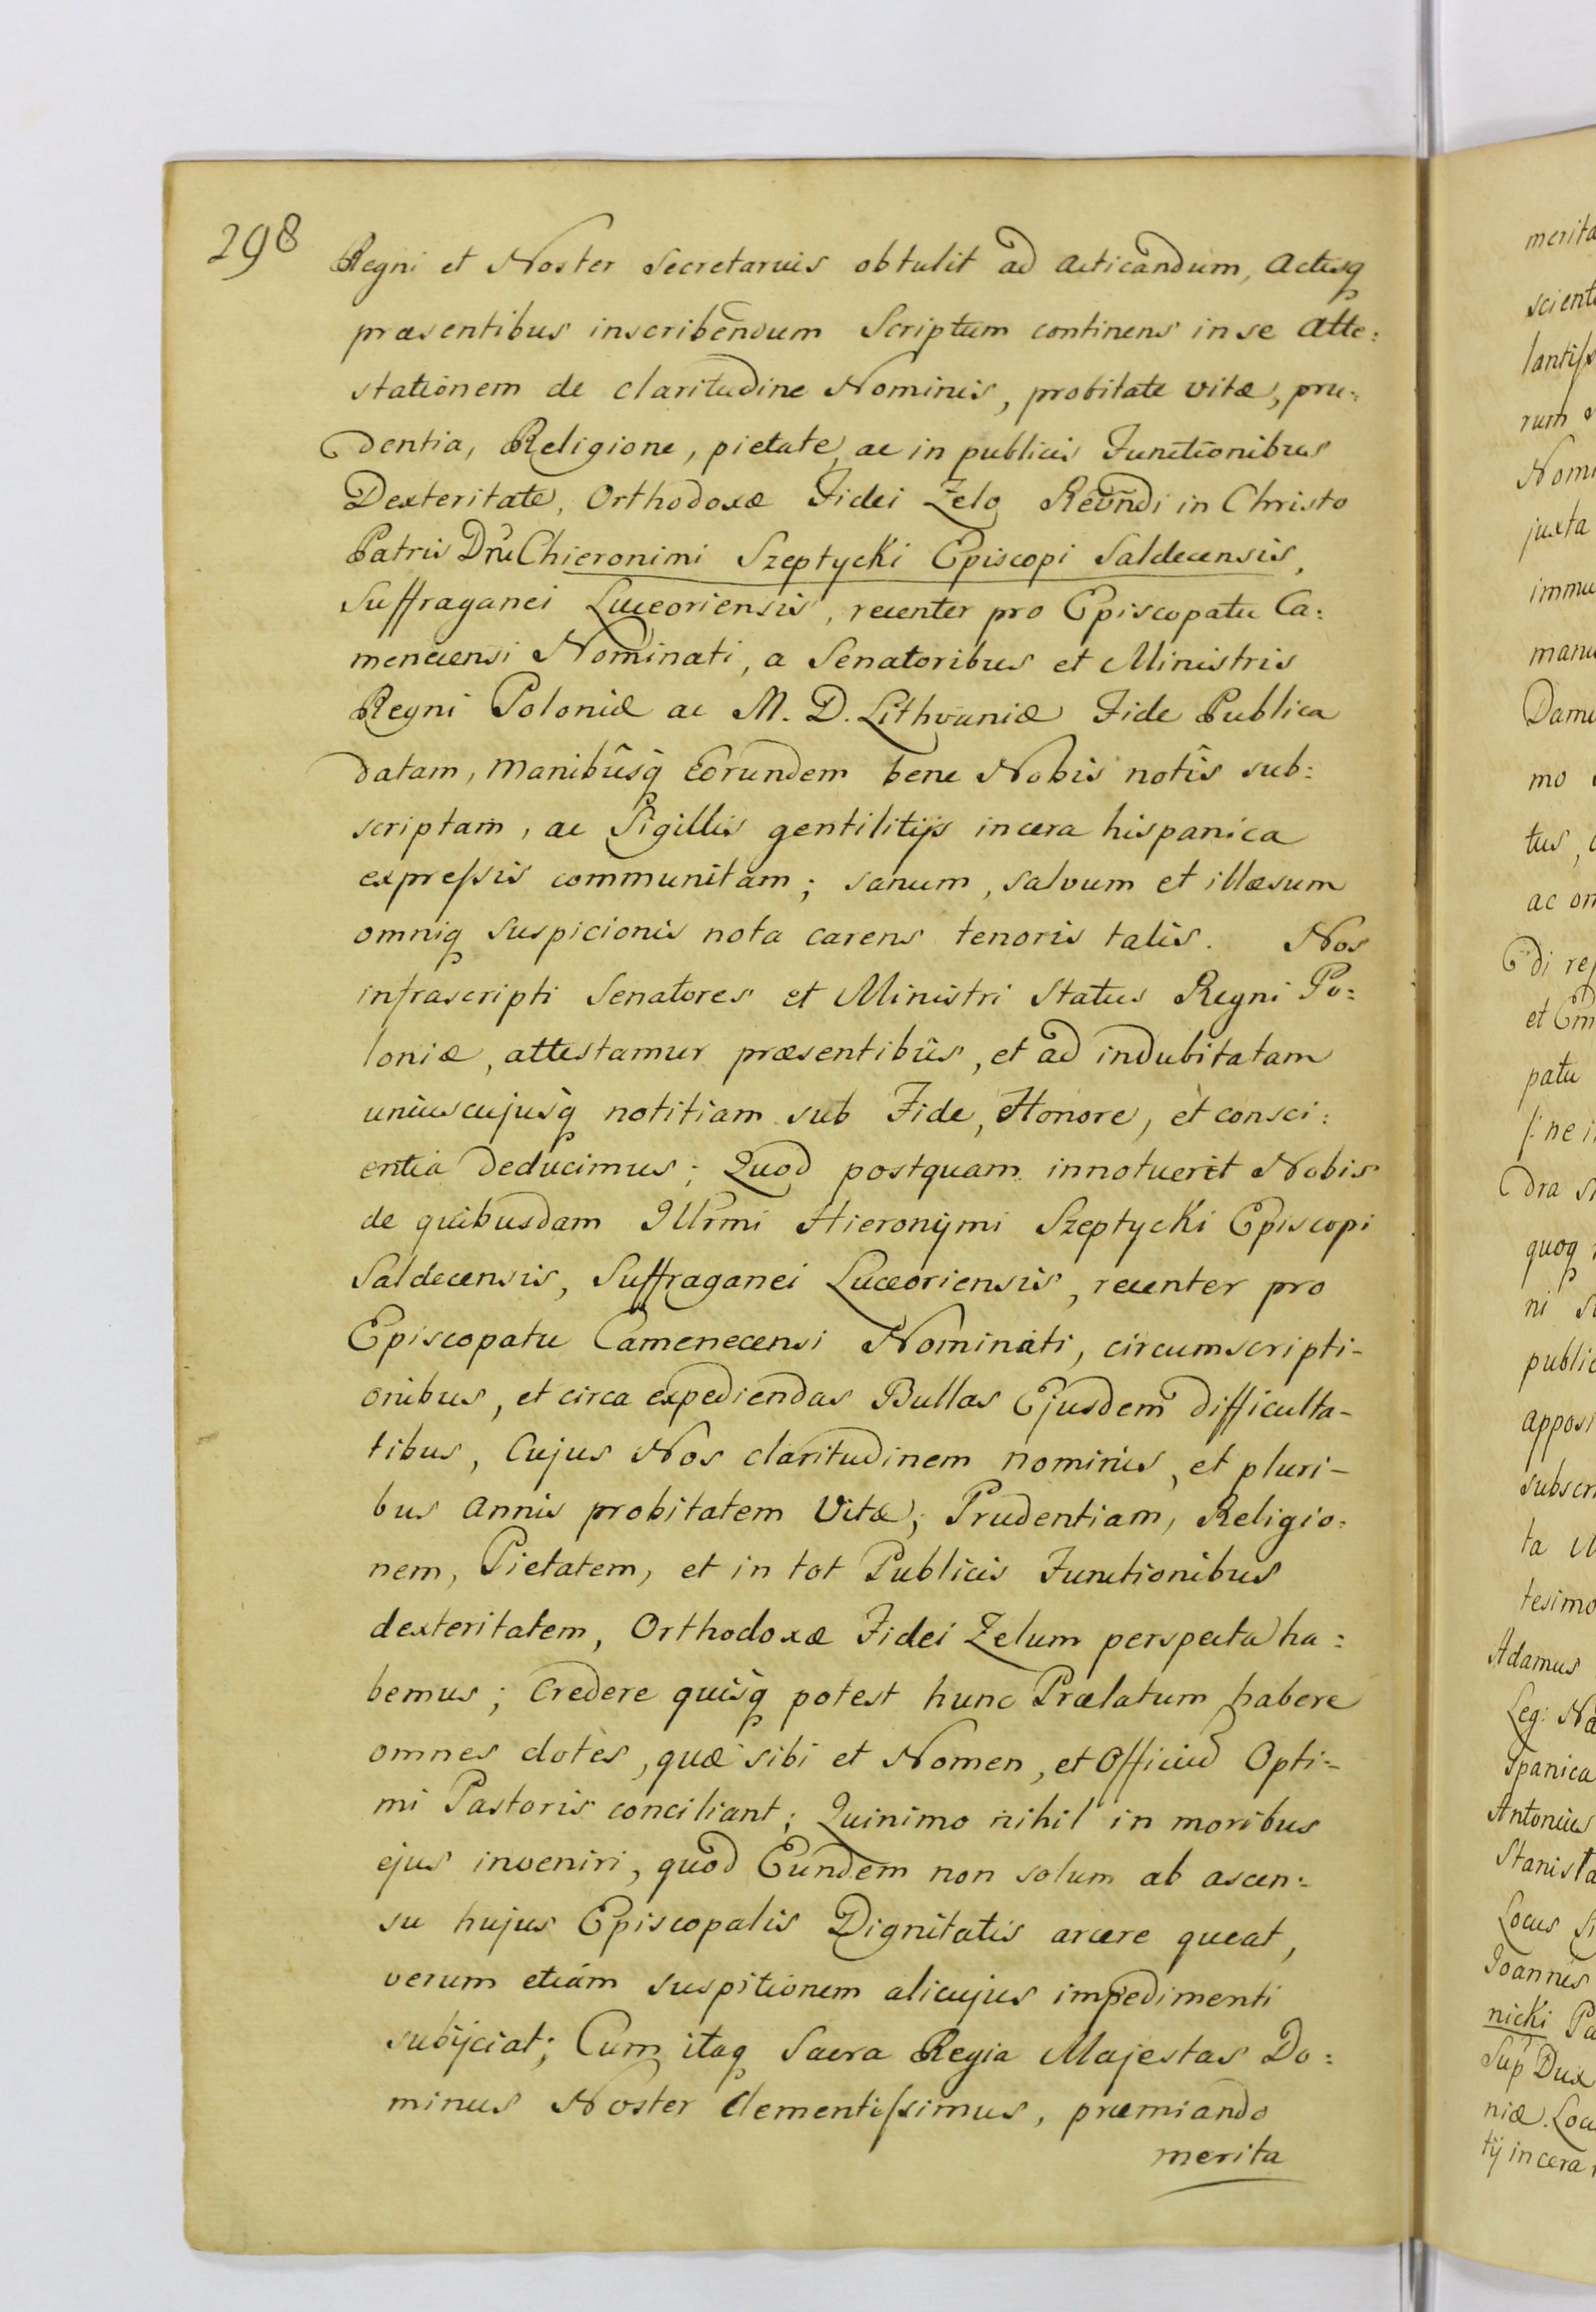 298
Regni et Noster Secretarius obtulit ad acticandum, Actisq
præsentibus inscribendum Scriptum continens in se Atte:
stationem de claritudine Nominis, probitate vitæ, pru:
dentia, Religione, pietate, ac in publicis Functionibus
Dexteritate, Orthodoxæ Fidei Zelo Revndi in Christo
Patris Dñi Chieronimi Szeptycki Episcopi Saldecensis,
Suffraganei Luceoriensis, recenter pro Episcopatu Ca:
menecensi Nominati, a Senatoribus et Ministris
Regni Poloniæ ac M. D. Lithvaniæ Fide Publica
datam, manibusq eorundem bene Nobis notis sub:
scriptam, ac Sigillis gentilitijs in cera hispanica
expressis communitam; sanum, salvum et illæsum
omniq suspicionis nota carens tenoris talis. Nos
infrascripti Senatores et Ministri Status Regni Po:
loniæ, attestamur præsentibus, et ad indubitatam
uniuscujusq notitiam sub Fide, Honore, et consci:
entia deducimus; Quod postquam innotuerit Nobis
de quibusdam Illrmi Hieronymi Szeptycki Episcopi
Saldecensis, Suffraganei Luceoriensis, recenter pro
Episcopatu Camenecensi Nominati, circumscripti-
onibus, et circa expediendas Bullas Ejusdem difficulta-
tibus, Cujus Nos claritudinem nominis, et pluri-
bus annis probitatem Vitæ, Prudentiam, Religio:
nem, Pietatem, et in tot Publicis Functionibus
dexteritatem, Orthodoxæ Fidei Zelum perspecta ha:
bemus; Credere quisq potest hunc Prælatum habere
omnes dotes, quæ sibi et Nomen, et Officiu Opti-
mi Pastoris conciliant; Quinimo nihil in moribus
ejus inveniri, quod Eundem non solum ab ascen:
su hujus Episcopalis Dignitatis arcere queat,
verum etiam suspitionem alicujus impedimenti
subijciat; Cum itaq Sacra Regia Majestas Do:
minus Noster Clementissimus, præmiando
merita
merita
scient
rum
Nomi
juxta
immu
manu
mo
tus,
ac om
di
et
patu
ne
dra
quoq
ni
public
apposi
subscri
ta
tesimo
Adamus
Leg:
spanica
Antonius
Stanisla
Locus
Joannis
nicki Pa
Sup Dux
niæ. Locu
tij in cera